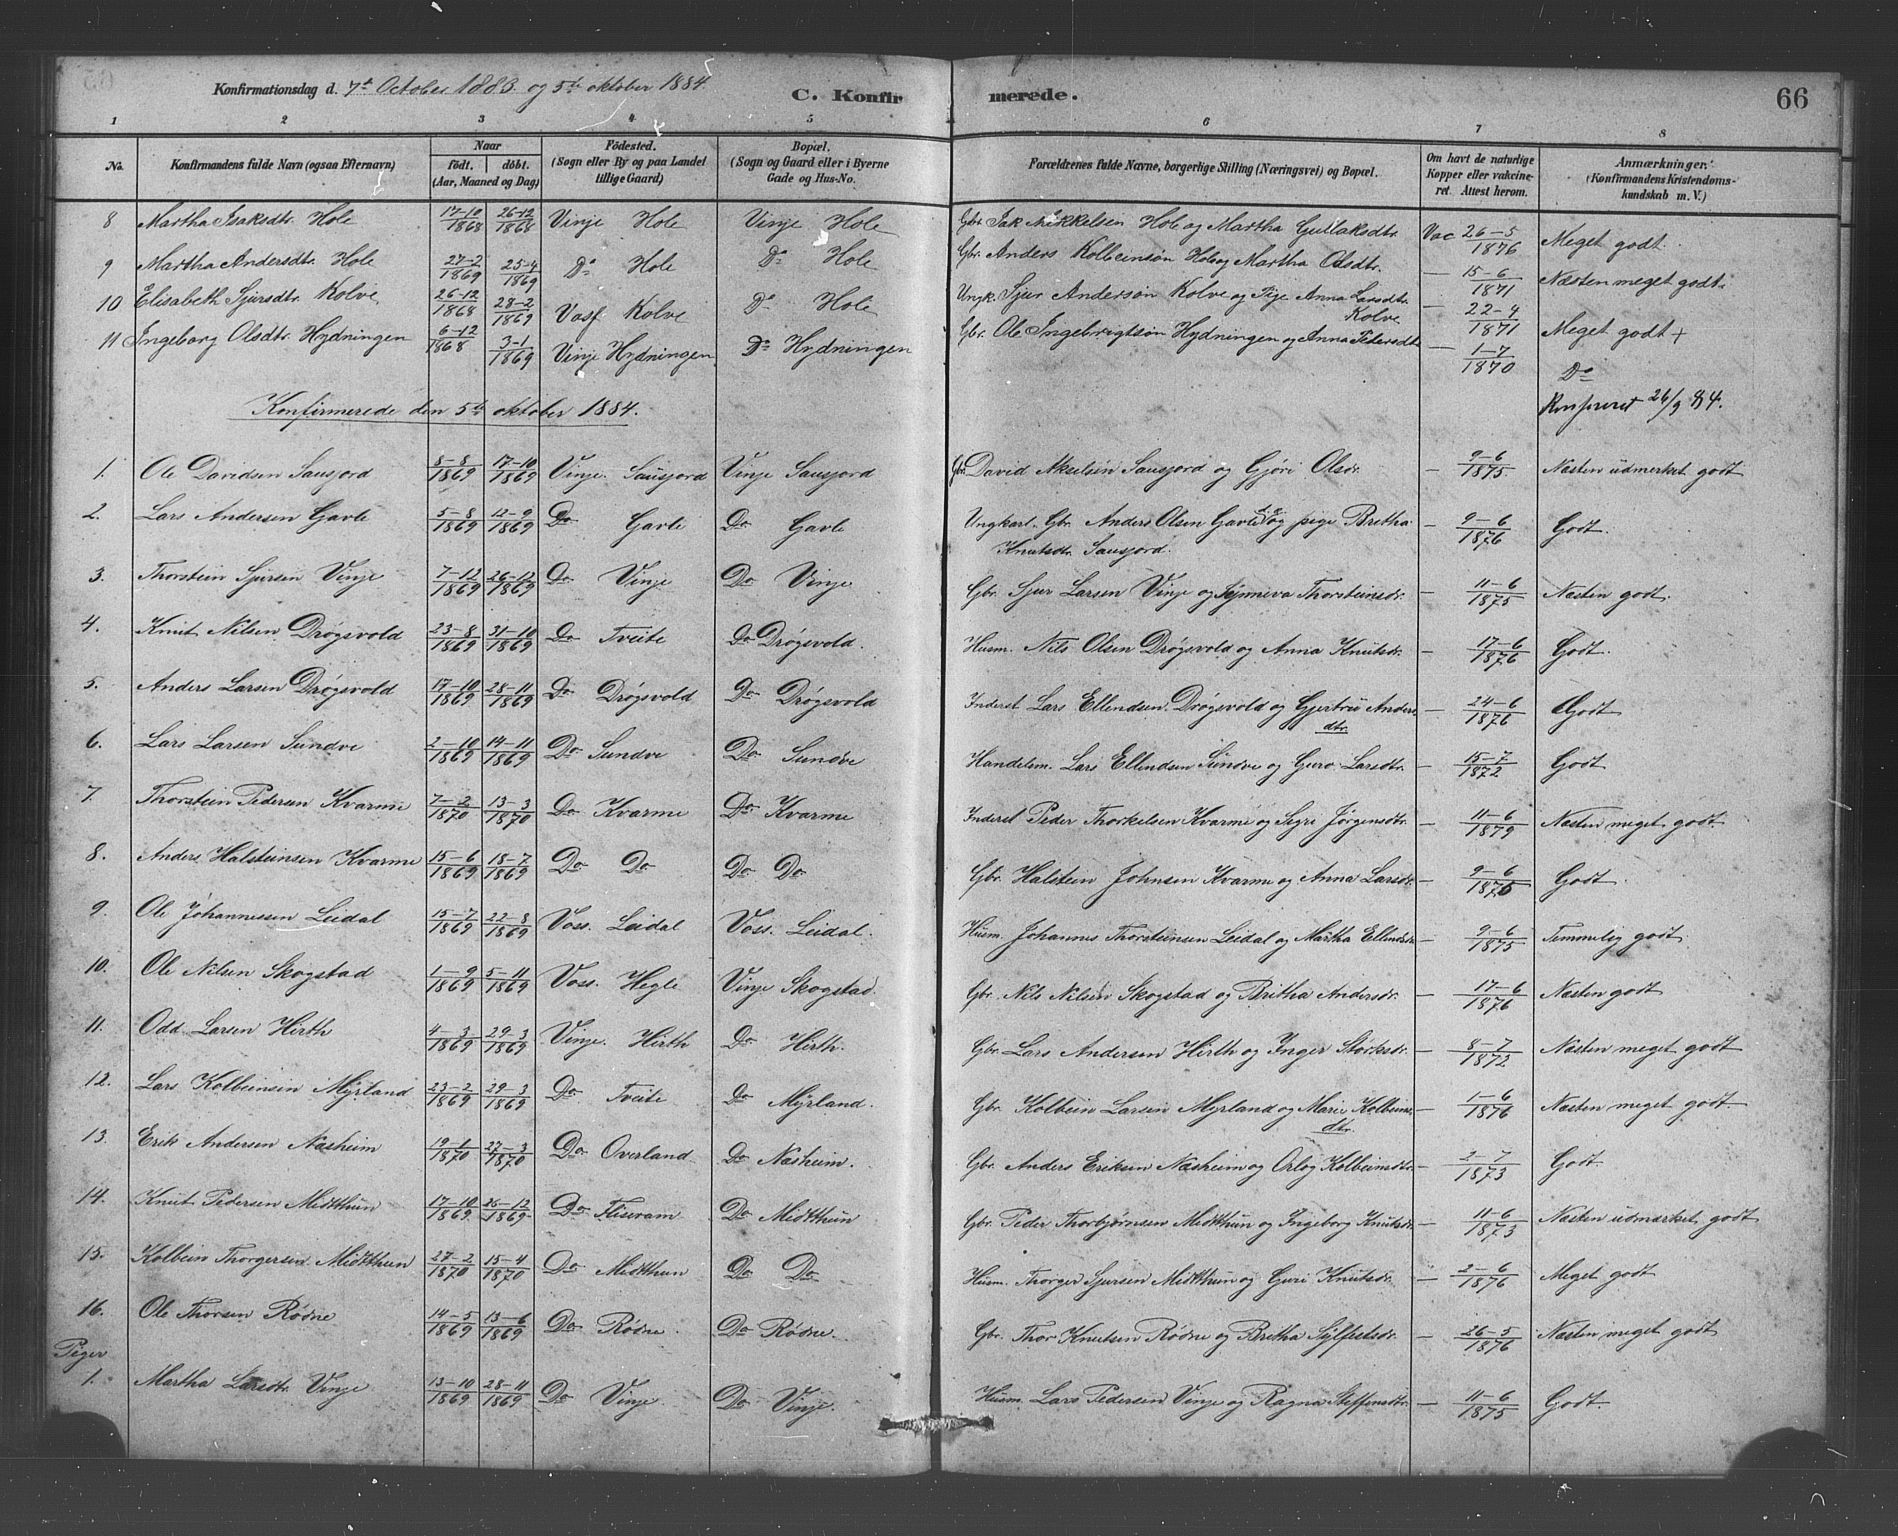 Konfirmationsdag d. 7de October 1883 og 5te oktober 1884. C. Konfirmerede. 66
1 2 3 4 5 6 7 8
No. Konfirmandens fulde Navn (ogsaa Efternavn) Naar født. døbt. (Aar, Maaned og Dag) Fødested. (Sogn eller By og paa Landet tillige Gaard) Bopæl. (Sogn og Gaard eller i Byerne Gade og Hus-No. Forældrenes fulde Navne, borgerlige Stilling (Næringsvei) og Bopæl. Om havt de naturlige Kopper eller vakcineret. Attest herom. Anmærkninger. (Konfirmandens Kristendomskundskab m. V.)
8 Martha Isaksdtr. Hole 17-10 1868 26-12 1868 Vinje Hole Vinje Hole Gbr. Isak Mikkelsen Hole og Martha Gullaksdtr. Vac 26-5 1876 Meget godt.
9 Martha Andersdtr. Hole 27-2 1869 25-4 1869 Do Hole Do Hole Gbr. Anders Kolbeinsøn Hole og Martha Olsdtr. — 15-6 1871 Næsten meget godt.
10 Elisabeth Sjursdtr. Kolve 26-12 1868 28-2 1869 Voss Kolve Do Hole Ungk. Sjur Andersøn Kolve og Pige Anna Larsdtr. Kolve — 22-4 1871 Meget godt +
11 Ingeborg Olsdtr. Hydningen 6-12 1868 3-1 1869 Vinje Hydningen Do Hydningen Gbr. Ole Ingebrigtsøn Hydningen og Anna Pedersdtr — 1-7 1870 Do
Konfirmerede den 5te oktober 1884. 26/9 84.
1. Ole Davidsen Sausjord 8-8 1869 17-10 1869 Vinje. Sausjord Vinje Sausjord Gbr David Akselsen Sausjord og Gjøri Olsdr. — 9-6 1875 Næsten udmerket godt
2. Lars Andersen Gavle 5-8 1869 12-9 1869 Do Gavle Do Gavle Ungkarl. Gbr. Anders Olsen Gavle og pige Bretha Knutsdtr. Sausjord. — 9-6 1876 Godt.
3. Thorstein Sjursen Vinje 7-12 1869 26-12 1869 Do Vinje Do Vinje Gbr. Sjur Larsen Vinje og Synneva Thorsteinsdr. 11-6 1875 Næsten godt.
4. Knut Nilsen Drøgsvold 23-8 1869 31-10 1869 Do Tveite Do Drøgsvold. Husm. Nils Olsen Drøgsvold og Anna Knutsdr. — 17-6 1876 Godt.
5. Anders Larsen Drøgsvold 17-10 1869 28-11 1869 Do Drøgsvold Do Drøgsvold Inderst Lars Ellendsen Drøgsvold og Gjertrú Andersdtr. — 24-6 1876 Godt
6. Lars Larsen Sundve 2-10 1869 14-11 1869 Do Sundve Do Sundve Handelsm. Lars Ellendsen Sundve og Guro Larsdtr. — 15-7 1872 Godt
7. Thorstein Pedersen Kvarme 7-2 1870 13-3 1870 Do Kvarme Do Kvarme Inderst Peder Thorkelsen Kvarme og Sygri Jørgensdtr. 11-6 1879 Næsten meget godt.
8. Anders Halsteinsen Kvarme 15-6 1869 18-7 1869 Do Do Do Do Gbr. Halstein Johnsen Kvarme og Anna Larsdr. — 9-6 1875 Godt.
9. Ole Johannessen Leidal 15-7 1869 22-8 1869 Voss. Leidal Voss. Leidal. Husm. Johannes Thorsteinsen Leidal og Martha Ellendsdr — 9-6 1875 Temmelig godt
10. Ole Nilsen Skogstad 1-9 1869 5-11 1869 Voss. Hegle Vinje Skogstad. Gbr. Nils Nilsen Skogstad og Britha Andersdr. — 17-6 1876 Næsten godt
11. Odd Larsen Hirth 4-3 1869 29-3 1869 Vinje. Hirth Do Hirth. Gbr. Lars Andersen Hirth og Inger Storksdr. — 8-7 1872 Næsten meget godt
12. Lars Kolbeinsen Myrland 23-2 1869 29-3 1869 Do Tveite Do Myrland. Gbr. Kolbein Larsen Myrland og Mari Kolbeinsdtr. — 1-6 1876 Næsten meget godt
13. Erik Andersen Næsheim 19-1 1870 27-3 1870 Do Overland Do Næsheim. Gbr. Anders Eriksen Næsheim og Orlog Kolbeinsdtr — 2-7 1873 Godt
14. Knut Pedersen Midtthun 17-10 1869 26-12 1869 Do Do Midtthun Gbr. Peder Thorbjørnsen Midtthun og Ingeborg Knutsdr — 11-6 1873 Næsten udmærket godt
15. Kolbein Thorgersen Midtthun 27-2 1870 15-4 1870 Do Midtthun Do Do Husm. Thorger Sjursen Midtthun og Guri Knutsdr. — 2-6 1876 Meget godt
16. Ole Thorsen Rødne 14-5 1869 13-6 1869 Do Rødne. Do Rødne. Gbr. Thor Knutsen Rødne og Britha Sylfestsdr. — 26-5 1876 Næsten meget godt
Piger
1. Martha Larsdtr. Vinje 13-10 1869 28-11 1869 Do Vinje. Do Vinje. Husm. Lars Pedersen Vinje og Ragna Steffensdtr. — 11-6 1875 Godt.